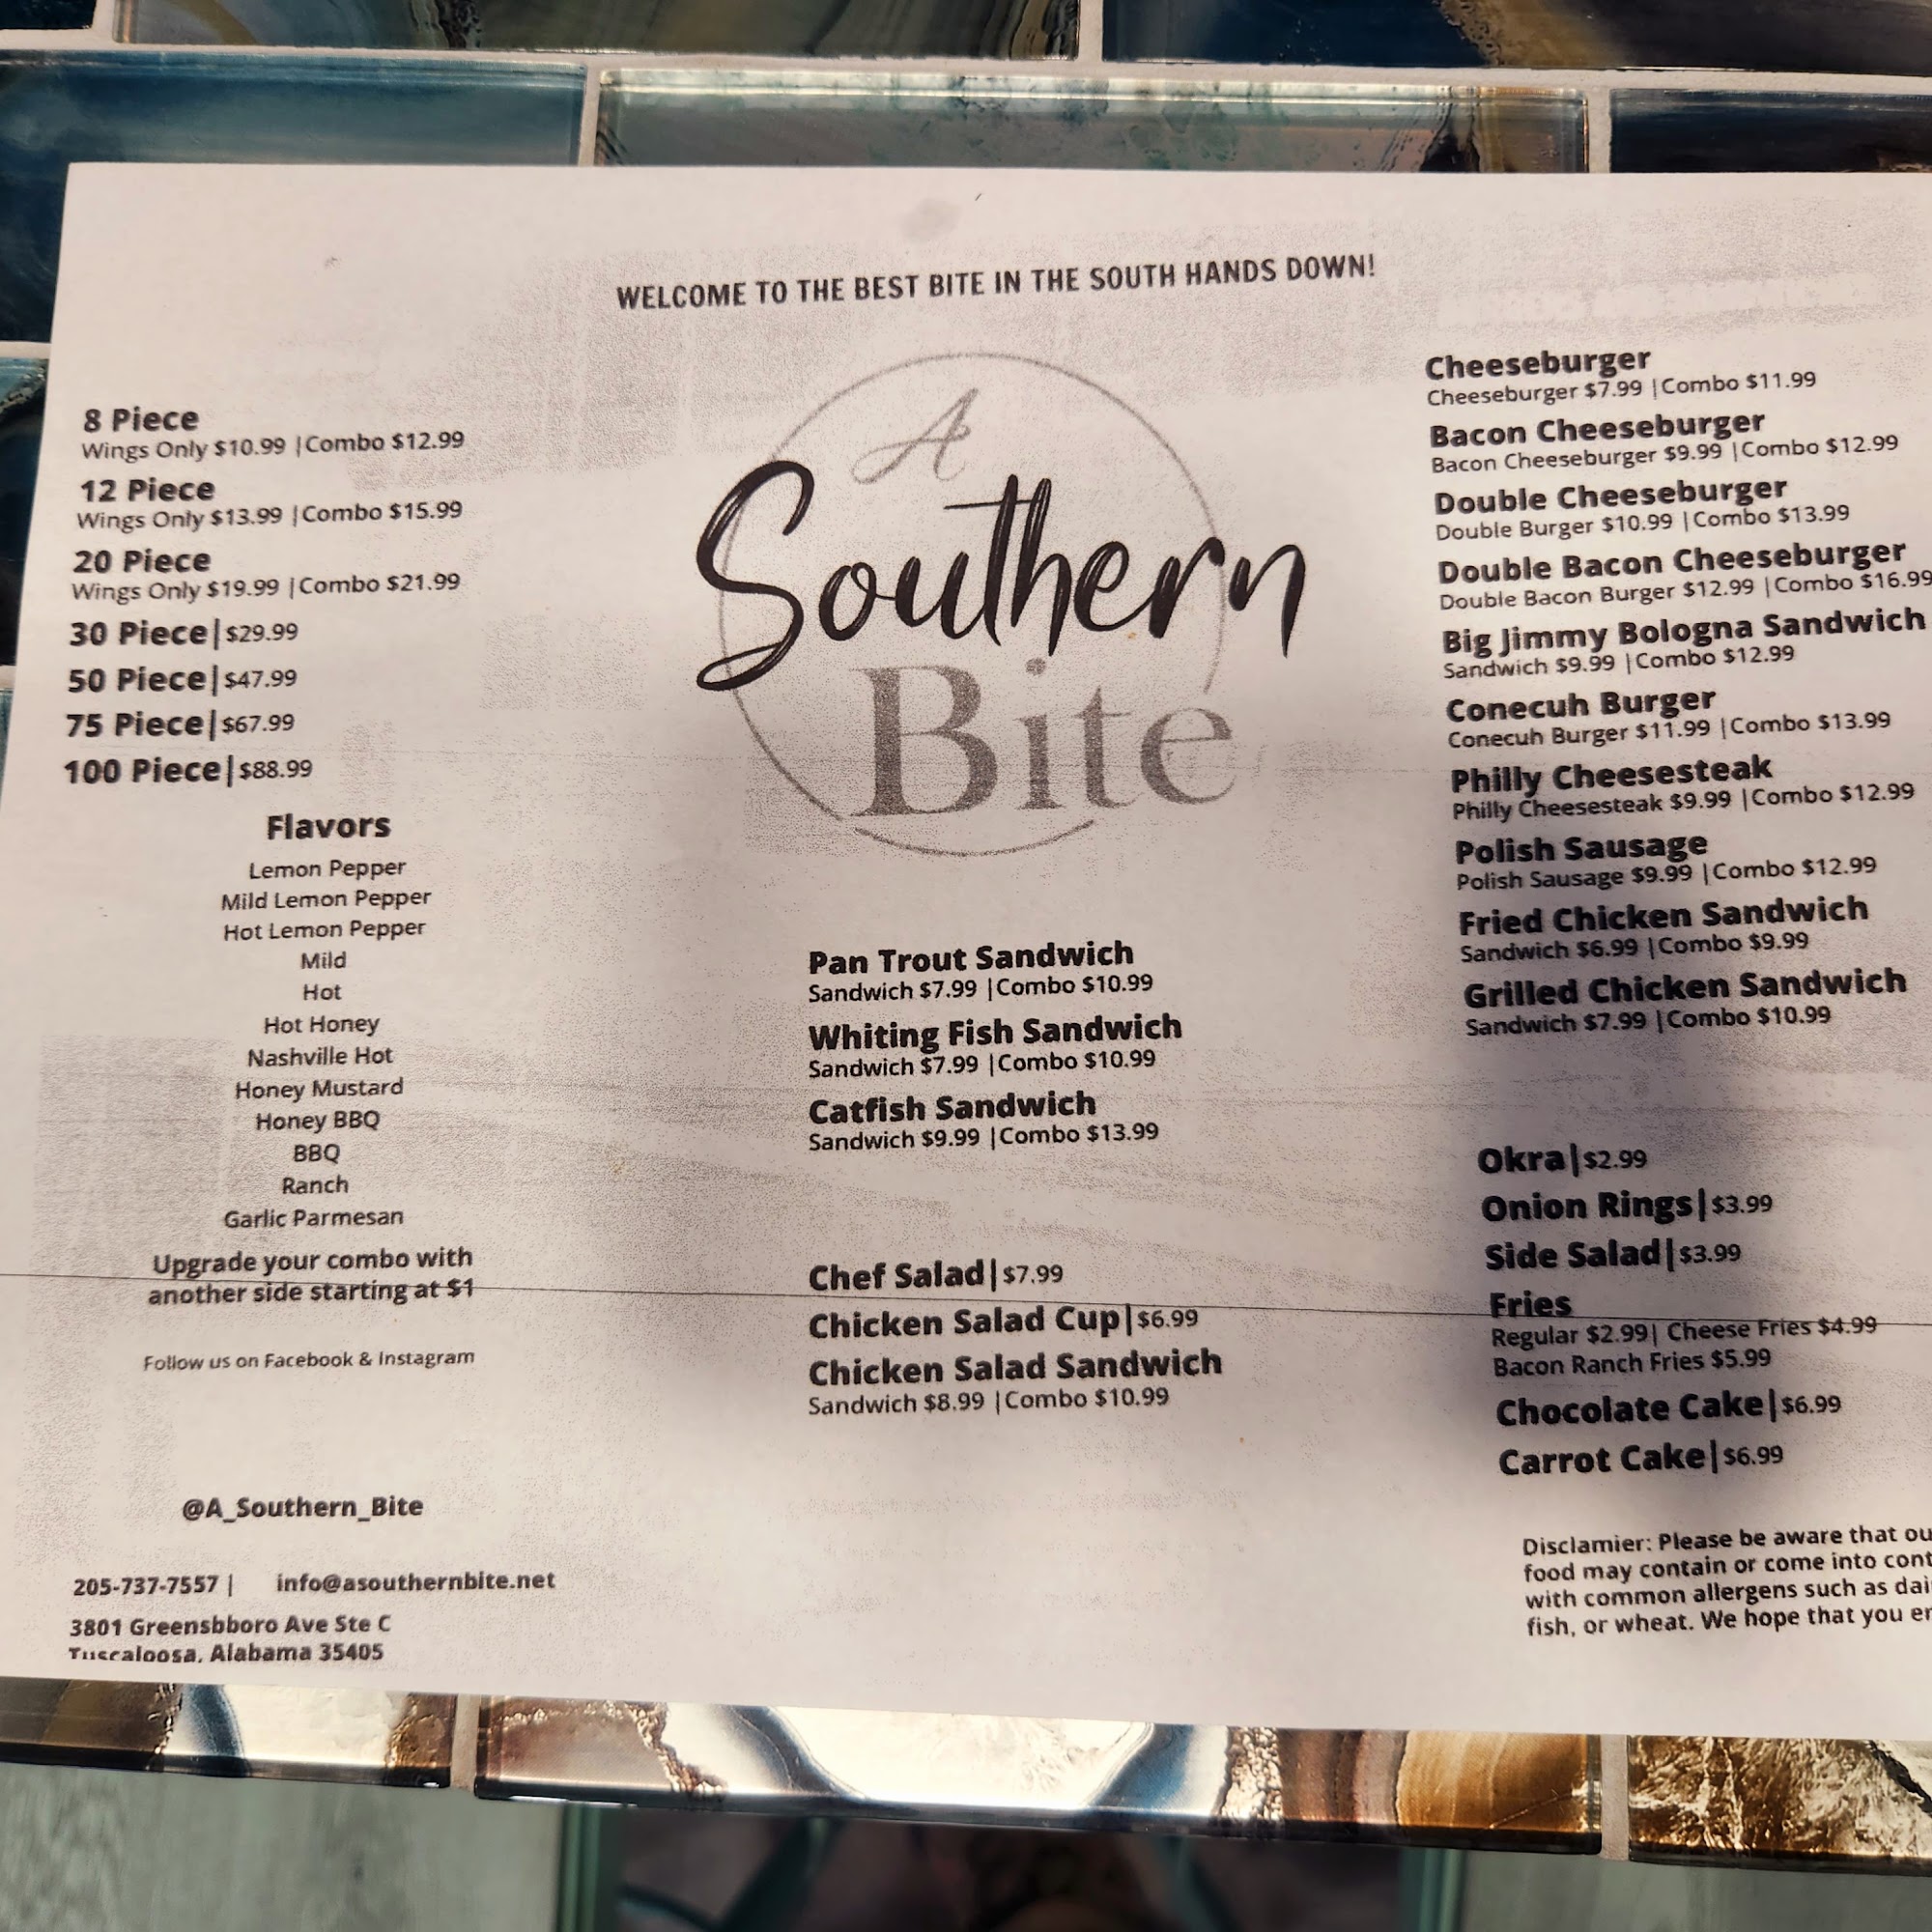 WELCOME TO THE BEST BITE IN THE SOUTH HANDS DOWN!
8 Piece
Wings Only $10.99 |Combo $12.99
12 Piece
Wings Only $13.99 |Combo $15.99
20 Piece
Wings Only $19.99 |Combo $21.99
30 Piece|$29.99
50 Piece|$47.99
75 Piece|$67.99
100 Piece|$88.99
Flavors
Lemon Pepper
Mild Lemon Pepper
Hot Lemon Pepper
Mild
Hot
Hot Honey
Nashville Hot
Honey Mustard
Honey BBQ
BBQ
Ranch
Garlic Parmesan
Upgrade your combo with
another side starting at $1
Follow us on Facebook & Instagram
@A_Southern_Bite
205-737-7557 | info@asouthernbite.net
3801 Greensbboro Ave Ste C
Tuscaloosa, Alabama 35405
A
Southern
Bite
Pan Trout Sandwich
Sandwich $7.99 |Combo $10.99
Whiting Fish Sandwich
Sandwich $7.99 |Combo $10.99
Catfish Sandwich
Sandwich $9.99 |Combo $13.99
Chef Salad|$7.99
Chicken Salad Cup|$6.99
Chicken Salad Sandwich
Sandwich $8.99 |Combo $10.99
Cheeseburger
Cheeseburger $7.99 |Combo $11.99
Bacon Cheeseburger
Bacon Cheeseburger $9.99 |Combo $12.99
Double Cheeseburger
Double Burger $10.99 |Combo $13.99
Double Bacon Cheeseburger
Double Bacon Burger $12.99 |Combo $16.99
Big Jimmy Bologna Sandwich
Sandwich $9.99 |Combo $12.99
Conecuh Burger
Conecuh Burger $11.99 |Combo $13.99
Philly Cheesesteak
Philly Cheesesteak $9.99 |Combo $12.99
Polish Sausage
Polish Sausage $9.99 |Combo $12.99
Fried Chicken Sandwich
Sandwich $6.99 |Combo $9.99
Grilled Chicken Sandwich
Sandwich $7.99 |Combo $10.99
Okra|$2.99
Onion Rings|$3.99
Side Salad|$3.99
Fries
Regular $2.99| Cheese Fries $4.99
Bacon Ranch Fries $5.99
Chocolate Cake|$6.99
Carrot Cake|$6.99
Disclamier: Please be aware that
food may contain or come into
with common allergens such as
fish, or wheat. We hope that you